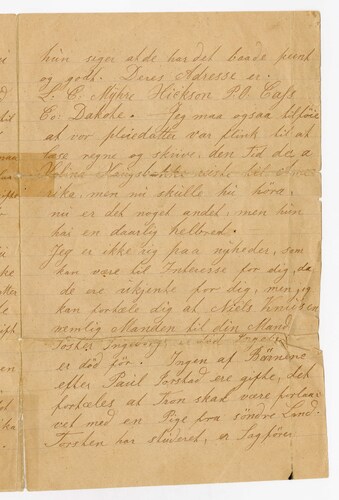 hun siger at de har det baade pent
og godt. Deres Adresse er.
L. E. Myhre Hickson P.O. Cass
Co Dakota. Jeg maa ogsaa tilföie
at vor pleiedatter var flink til at
læse regne og skrive, den Tid de a
reiste til Ame
rika, men nu skulle hu höra,
nu er det noget andet, men hun
har en daarlig helbred.
Jeg er ikke rig paa nyheder, som
kan være til Interesse for dig, da
de ere ukjente for dig, men jeg
kan fortæle dig at Niels Knudsen
nemlig Manden til din Mand
er död
er död för. Ingen af Börnene
efter Paul Torstad ere gifte, det
fortæles at Tron skal være forlaa
vet med en Pige fra söndre Land.
Torsten har studeret, er Sagförer